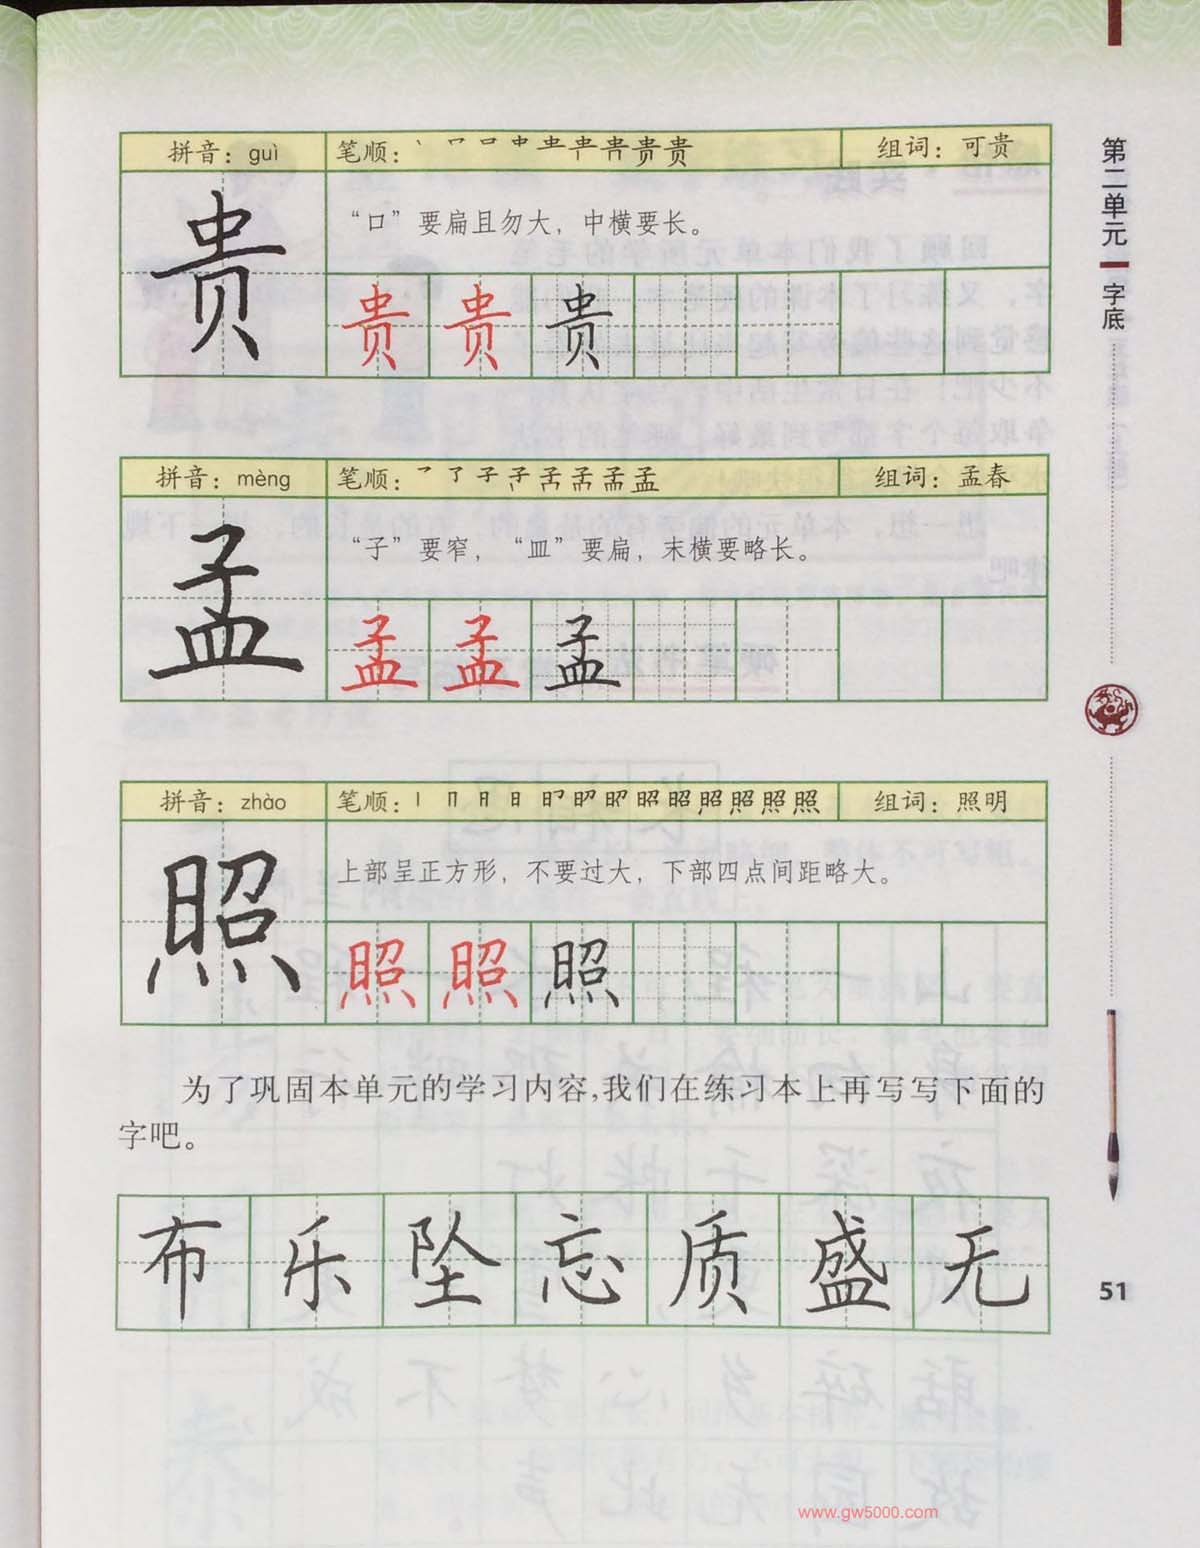 拼音：guì 笔顺： 组词：可贵
贵
“口”要扁且勿大，中横要长。
贵 贵 贵
拼音：mèng 笔顺： 组词：孟春
孟
“子”要窄，“皿”要扁，末横要略长。
孟 孟 孟
拼音：zhào 笔顺： 组词：照明
照
上部呈正方形，不要过大，下部四点间距略大。
照 照 照
为了巩固本单元的学习内容,我们在练习本上再写写下面的
字吧。
布 乐 坠 忘 质 盛 无
第二单元 字底
51
www.gw5000.com